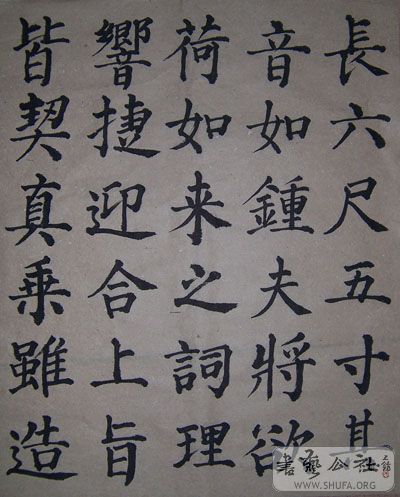 長六尺五寸其
音如鍾夫將欲
荷如来之詞理
響捷迎合上旨
皆契真乘雖造
書藝公社
WWW.SHUFA.ORG